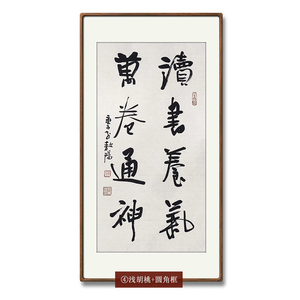 讀書養氣
萬卷通神
④浅胡桃+圆角框